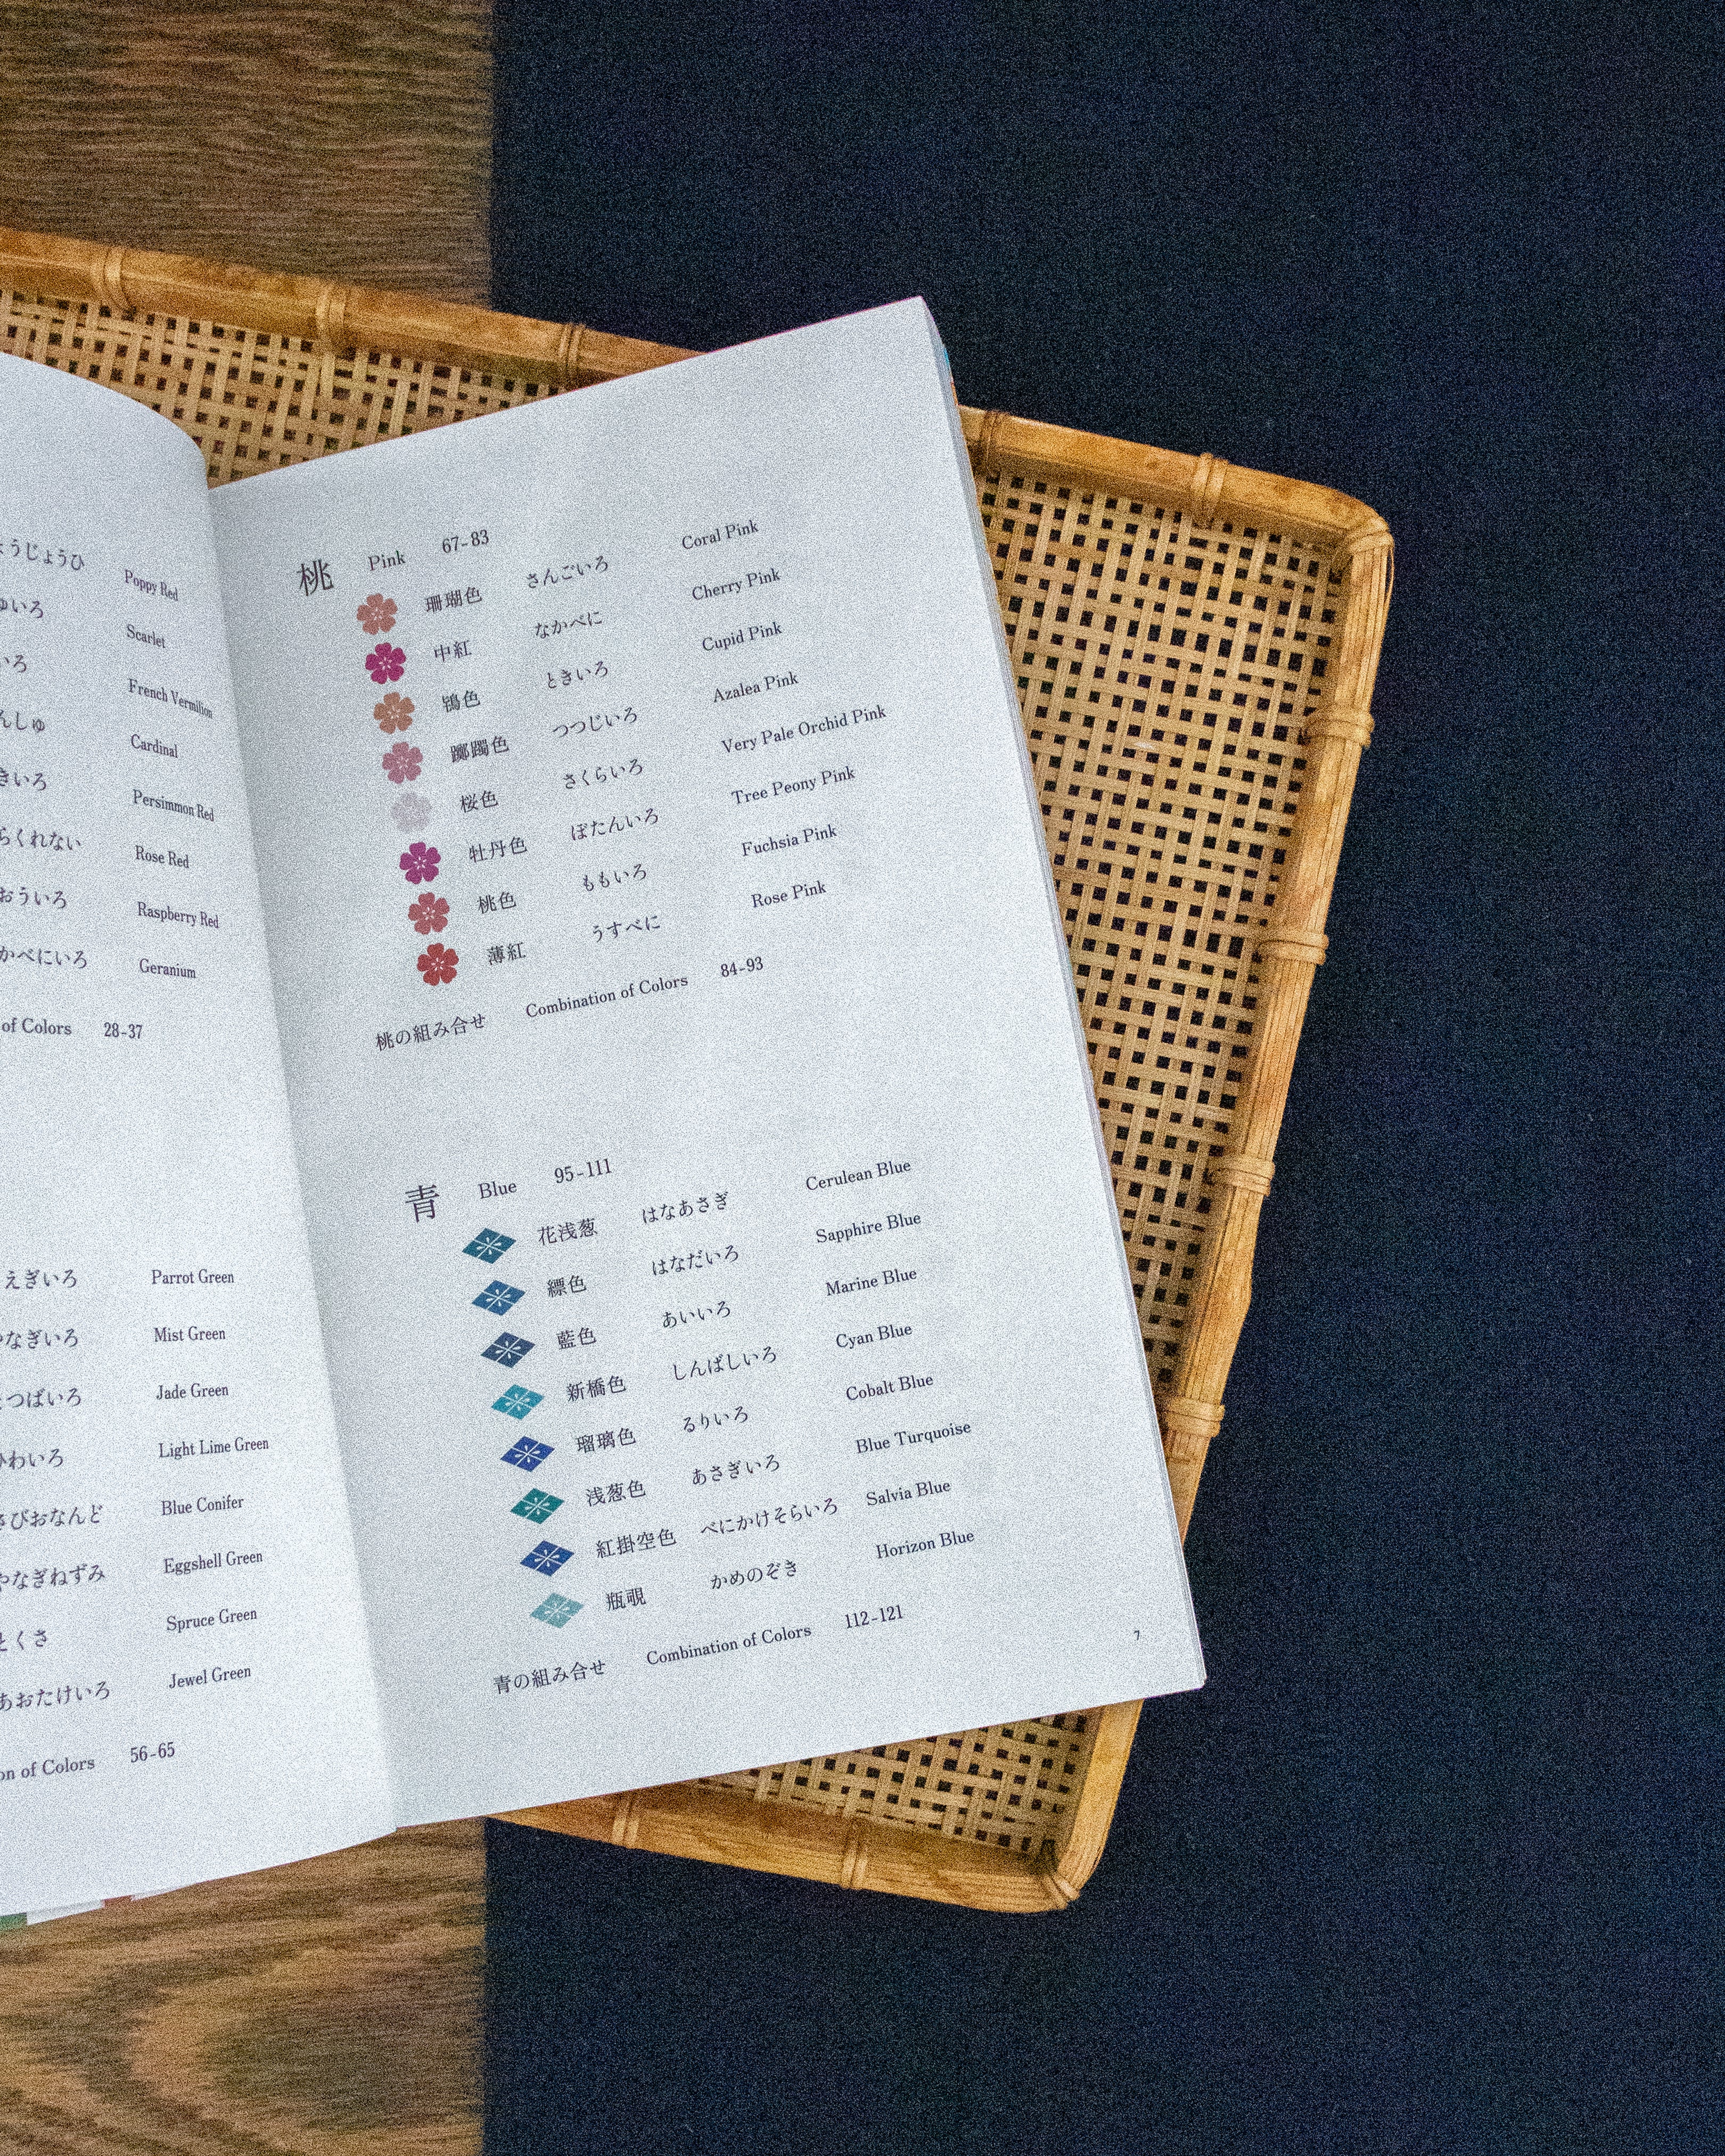 ょうじょうひ Poppy Red
ゅいろ Scarlet
いろ French Vermilion
んしゅ Cardinal
きいろ Persimmon Red
らくれない Rose Red
おういろ Raspberry Red
かべにいろ Geranium
of Colors 28-37
えぎいろ Parrot Green
なぎいろ Mist Green
つばいろ Jade Green
わいろ Light Lime Green
さびおなんど Blue Conifer
やなぎねずみ Eggshell Green
とくさ Spruce Green
あおたけいろ Jewel Green
on of Colors 56-65
桃 Pink 67-83
珊瑚色 さんごいろ Coral Pink
中紅 なかべに Cherry Pink
鴇色 ときいろ Cupid Pink
躑躅色 つつじいろ Azalea Pink
桜色 さくらいろ Very Pale Orchid Pink
牡丹色 ぼたんいろ Tree Peony Pink
桃色 ももいろ Fuchsia Pink
薄紅 うすべに Rose Pink
桃の組み合せ Combination of Colors 84-93
青 Blue 95-111
花浅葱 はなあさぎ Cerulean Blue
縹色 はなだいろ Sapphire Blue
藍色 あいいろ Marine Blue
新橋色 しんばしいろ Cyan Blue
瑠璃色 るりいろ Cobalt Blue
浅葱色 あさぎいろ Blue Turquoise
紅掛空色 べにかけそらいろ Salvia Blue
瓶覗 かめのぞき Horizon Blue
青の組み合せ Combination of Colors 112-121
7